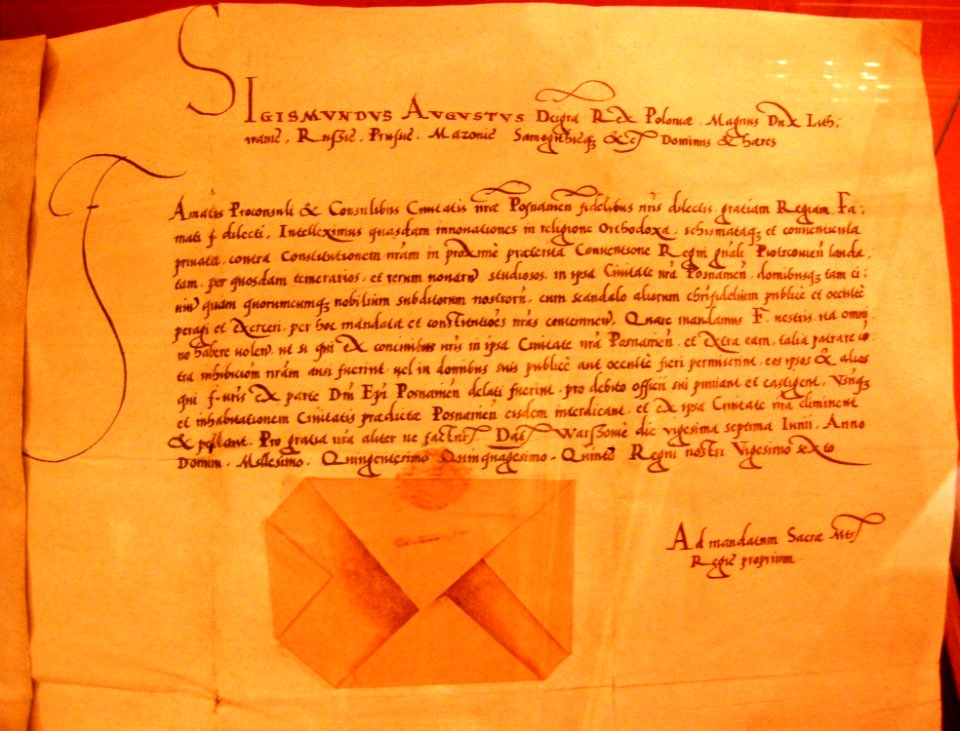 SIGISMVNDVS AVGVSTVS Dei gra Rex Poloniæ. Magnus Dux Lith:
vaniæ, Russiæ, Prusiæ, Mazoviæ Samogithieq; &c Dominus & hæres
Famatis Proconsuli & Consulibus Civitatis nræ Posnanien fidelibus nris dilectis, gratiam Regiam. Fa:
mati f. dilecti, Intelleximus quasdam innovationes in religione Orthodoxa, schismataq; et conventicula
privata, contra Constitutionem nram in proxime præterita Conventione Regni gnali Piotrcovien lauda
tam, per quosdam temerarios, et rerum novarum studiosos, in ipsa Civitate nra Posnanien, domibusq; tam ci:
vium quam quorumcumq; nobilium subditorum nostroru, cum scandalo aliorum chrifidelium publice et occulte
peragi et exerceri, per hoc mandata et constitutiones nras contemnendo. Quare mandamus F. vestris ita omni
no habere volen, ut si qui ex concivibus nris in ipsa Civitate nra Posnanien, et extra eam, talia patrare co
tra inhibicionem nram ausi fuerint, vel in domibus suis publice aut occulte fieri permiserint, eos ipsos et alios
qui f. vris ex parte Dni Epi Posnanien delati fuerint, pro debito officii sui puniant et castigent, Usuq;
et inhabitationem Civitatis prædictæ Posnanien eisdem interdicant, et ex ipsa Civitate nra eliminent
& pellant, Pro gratia nra aliter ne facturi. Dat Warssoviæ die vigesima septima Iunii, Anno
Domini Millesimo Quingentesimo Quinquagesimo Quinto Regni nostri Vigesimo sexto
Ad mandatum Sacræ Mtis
Regiæ proprium